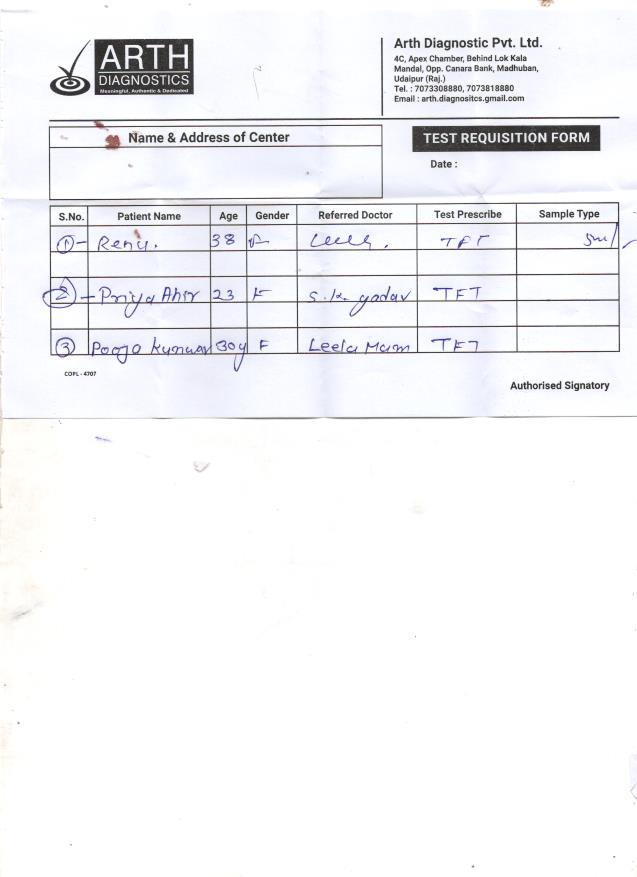 ARTH
DIAGNOSTICS
Meaningful, Authentic & Dedicated
Arth Diagnostic Pvt. Ltd.
4C, Apex Chamber, Behind Lok Kala
Mandal, Opp. Canara Bank, Madhuban,
Udaipur (Raj.)
Tel. : 7073308880, 7073818880
Email : arth.diagnositcs.gmail.com
Name & Address of Center
TEST REQUISITION FORM
Date :
S.No. Patient Name Age Gender Referred Doctor Test Prescribe Sample Type
1- Renu. 38 F TFT
2- Priya Ahir 23 F S.K. yadav TFT
3 Pooja Kunwar 30y F Leela Mam TFT
COPL - 4707
Authorised Signatory